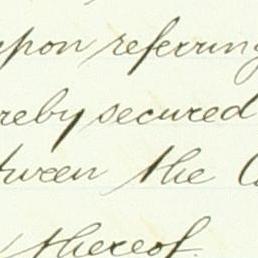 upon referring
reby secured
tween the
thereof.